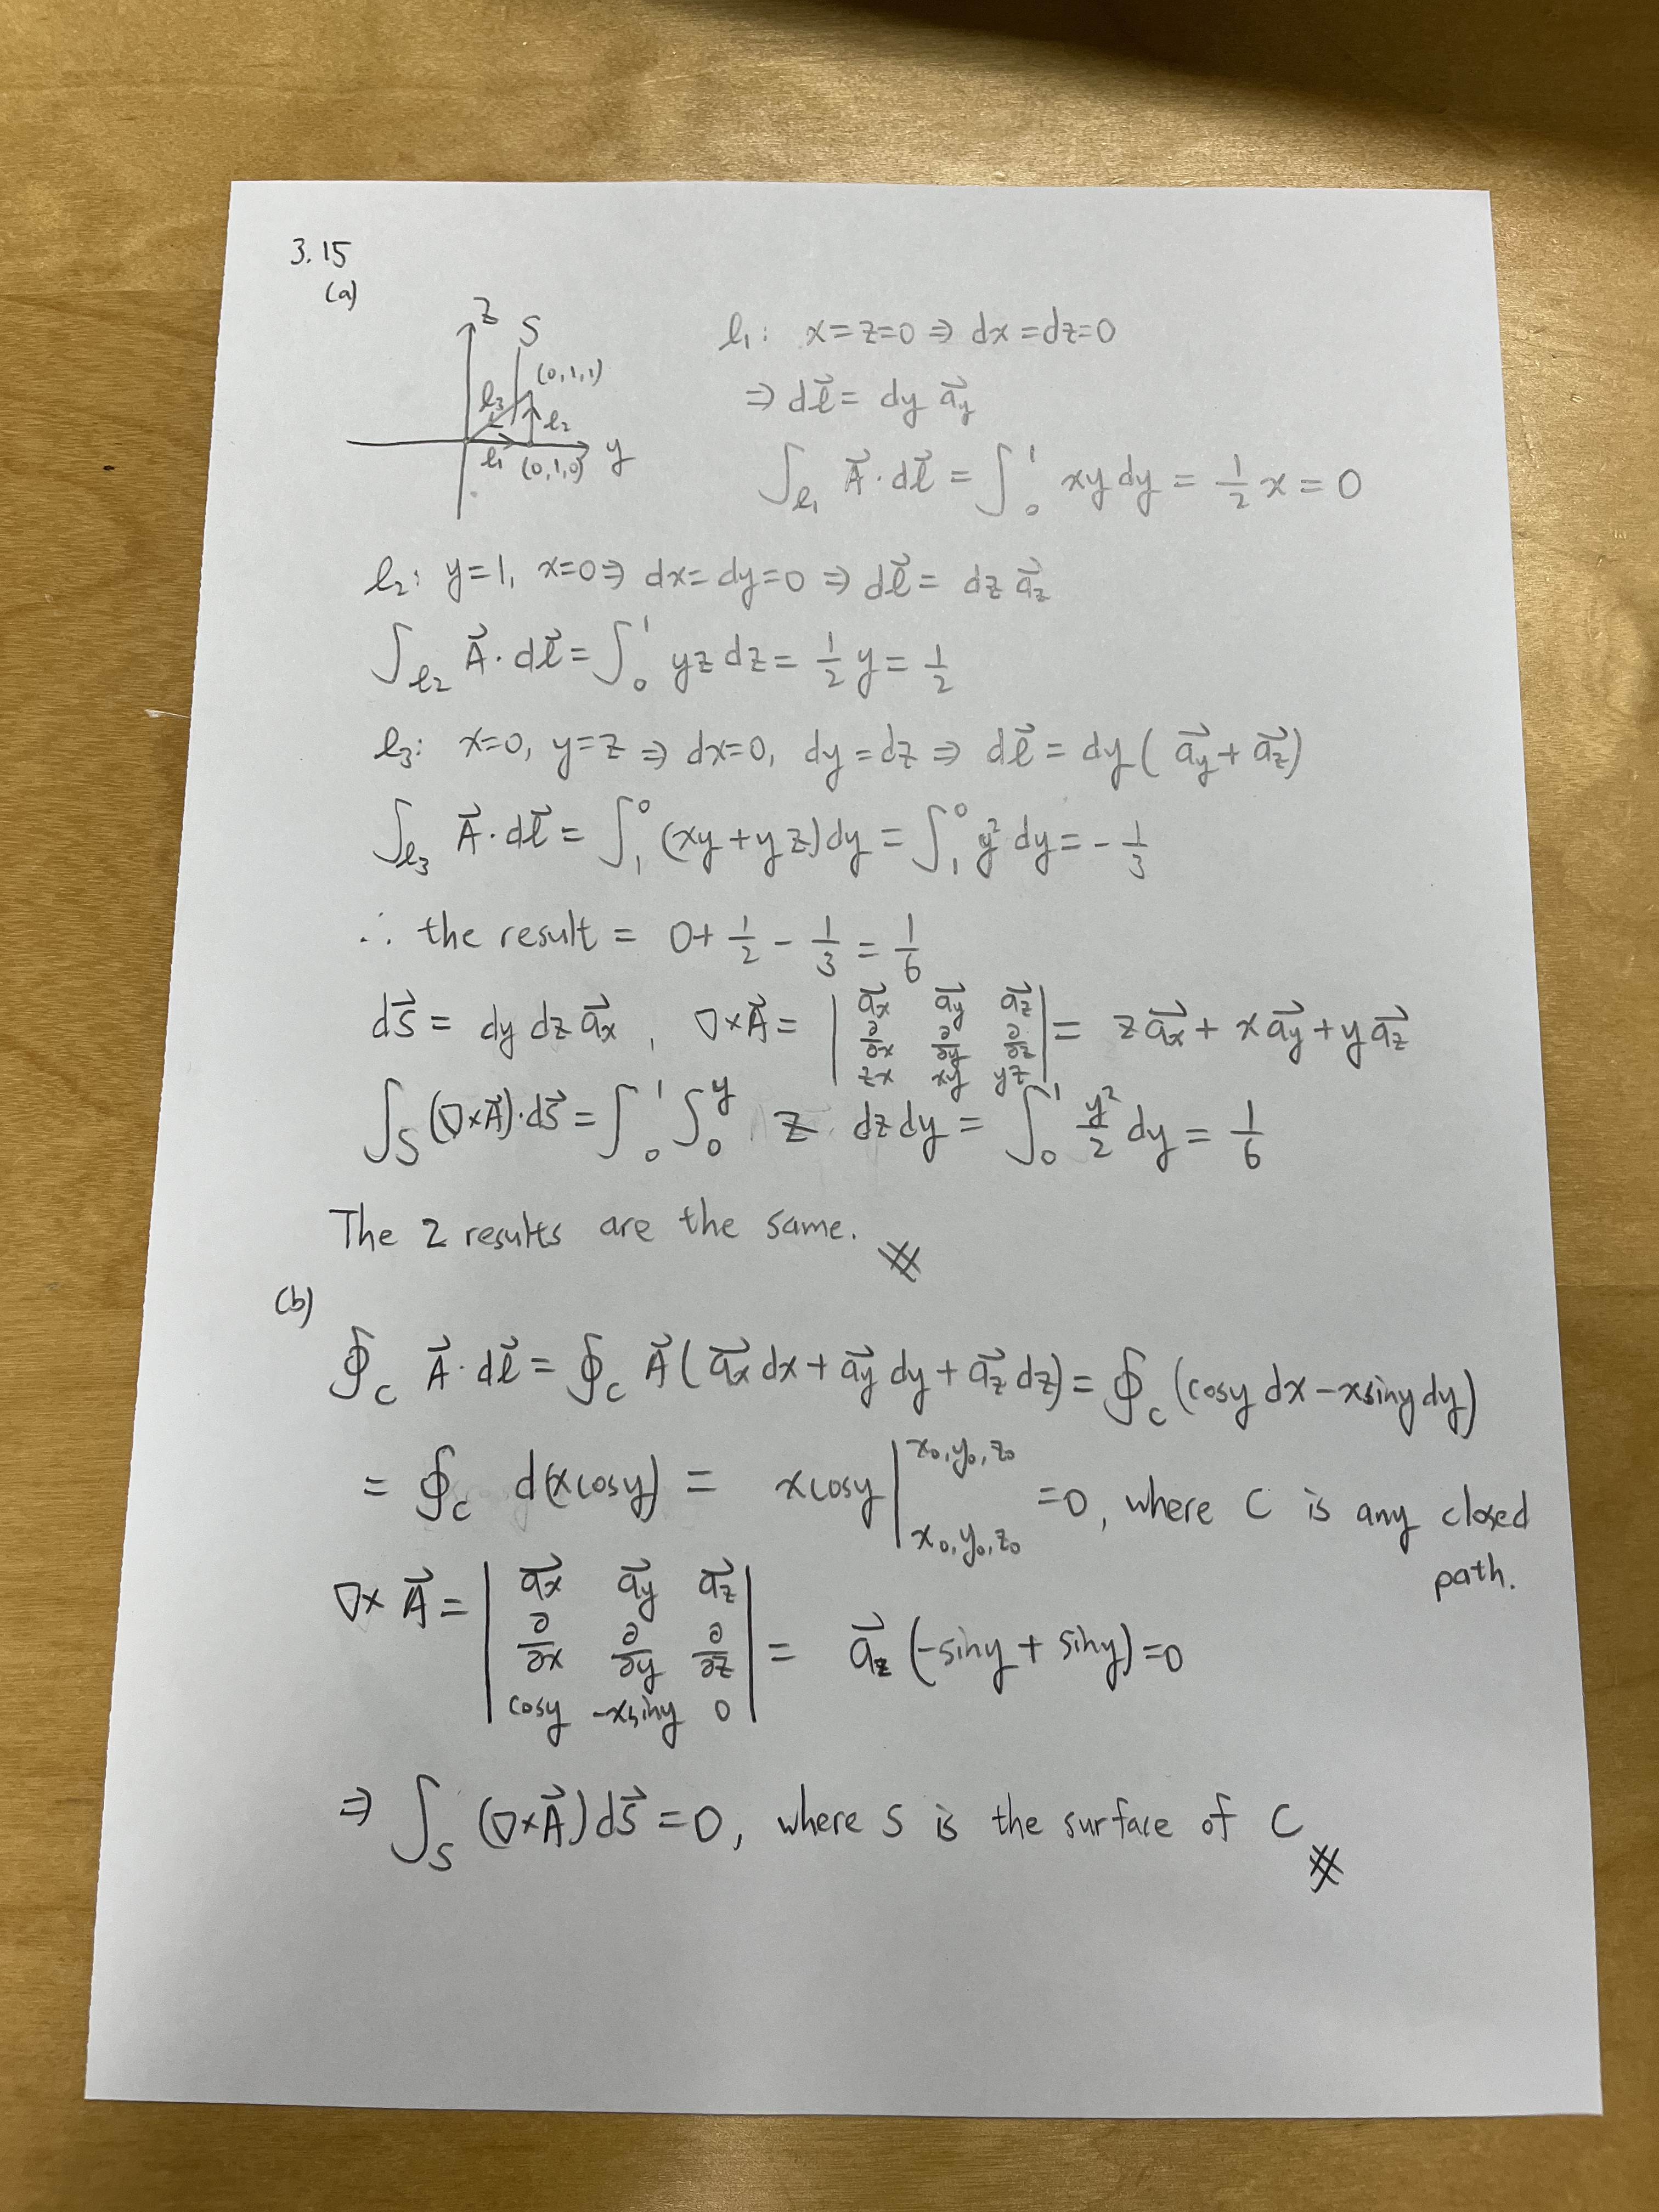 3.15
(a)
z S (0,1,1) l3 l2 l1 (0,1,0) y
l1: x=z=0 ⇒ dx=dz=0
⇒ dl⃗ = dy a⃗y
∫l1 A⃗·dl⃗ = ∫₀¹ xy dy = 1/2 x = 0
l2: y=1, x=0 ⇒ dx=dy=0 ⇒ dl⃗ = dz a⃗z
∫l2 A⃗·dl⃗ = ∫₀¹ yz dz = 1/2 y = 1/2
l3: x=0, y=z ⇒ dx=0, dy=dz ⇒ dl⃗ = dy (a⃗y + a⃗z)
∫l3 A⃗·dl⃗ = ∫₁⁰ (xy + yz) dy = ∫₁⁰ y² dy = -1/3
∴ the result = 0 + 1/2 - 1/3 = 1/6
dS⃗ = dy dz a⃗x, ∇×A⃗ = | a⃗x a⃗y a⃗z ; ∂/∂x ∂/∂y ∂/∂z ; zx xy yz | = z a⃗x + x a⃗y + y a⃗z
∫S (∇×A⃗)·dS⃗ = ∫₀¹ ∫₀^y z · dz dy = ∫₀¹ y²/2 dy = 1/6
The 2 results are the same. #
(b)
∮c A⃗·dl⃗ = ∮c A⃗(a⃗x dx + a⃗y dy + a⃗z dz) = ∮c (cosy dx - xsiny dy)
= ∮c d(xcosy) = xcosy |x₀,y₀,z₀ x₀,y₀,z₀ = 0, where C is any closed path.
∇×A⃗ = | a⃗x a⃗y a⃗z ; ∂/∂x ∂/∂y ∂/∂z ; cosy -xsiny 0 | = a⃗z (-siny + siny) = 0
⇒ ∫S (∇×A⃗) dS⃗ = 0, where S is the surface of C #